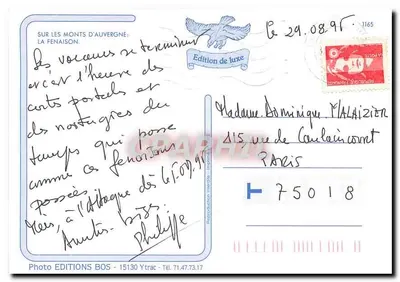 SUR LES MONTS D'AUVERGNE:
LA FENAISON.
Edition de luxe
1165
le 29.08.95.
Les vacances se terminent
et c'est l'heure des
cartes postales et
des nostalgies du
temps qui passe
comme ces fenaisons
passées.
Mais, à l'attaque dès 05.09.95
Amitiés.
Philippe
Madame Dominique MALAIZIER
115 rue de Caulaincourt
PARIS
75018
Photo EDITIONS BOS - 15130 Ytrac - Tél. 71.47.73.17